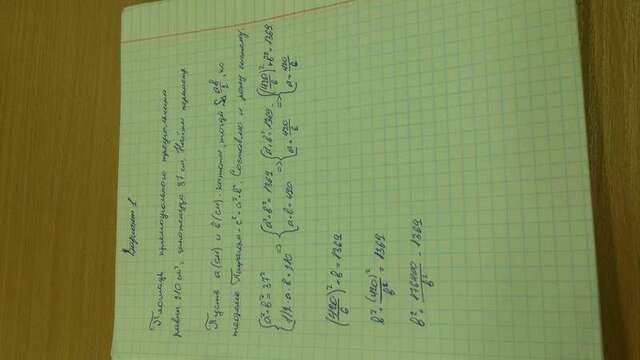 Вариант 1
Площадь прямоугольного треугольника
равна 210 см², гипотенуза 37 см. Найти периметр.
Пусть a (см) и b (см) - катеты, тогда S = ab/2, по
теореме Пифагора - c² = a² + b². Составлю и решу систему:
{a² + b² = 37² {a² + b² = 1369 {a² + b² = 1369 {(420/b)² + b² = 1369
{1/2 · a · b = 210 => {a · b = 420 => {a = 420/b => {a = 420/b
(420/b)² + b = 1369
b² + (420)²/b² = 1369
b² + 176400/b² = 1369